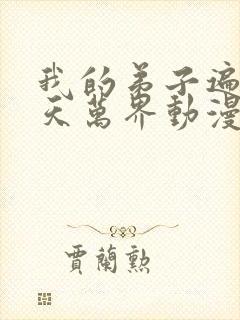 我的弟子遍
天萬界動漫
賈蘭勲